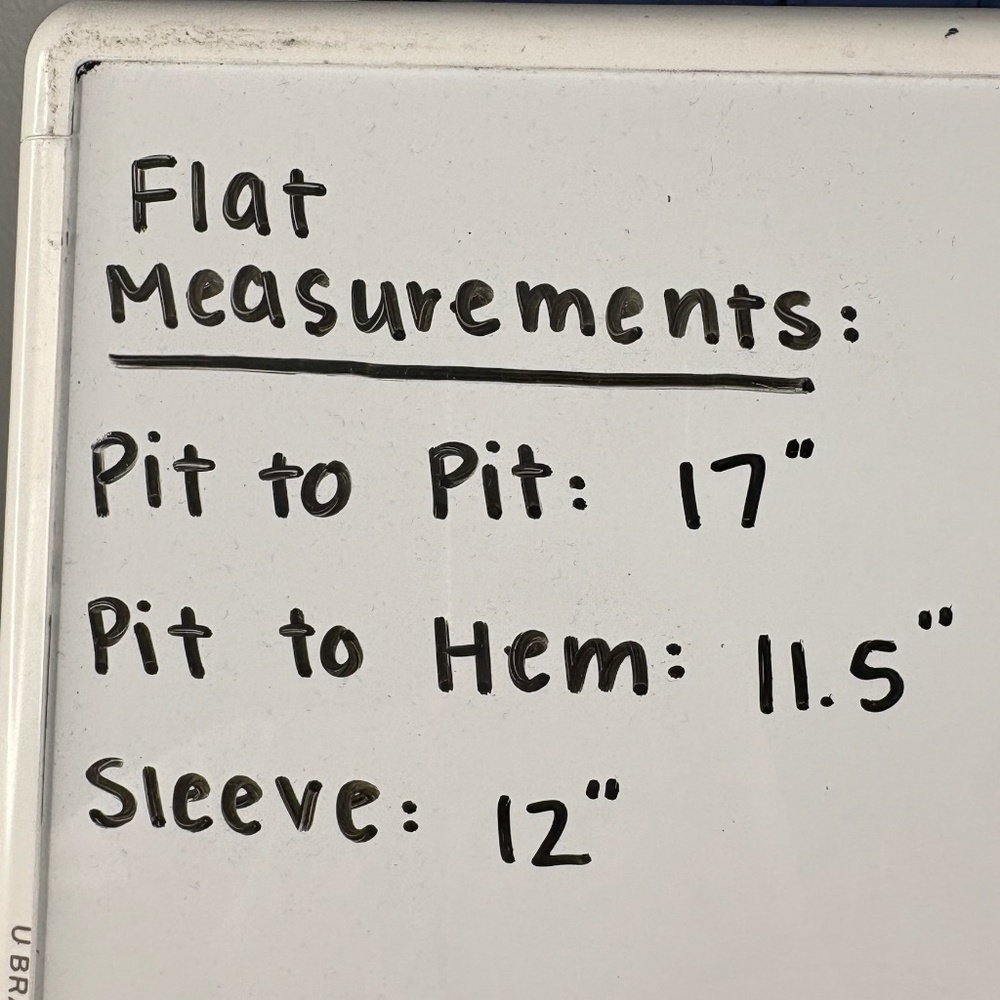 Flat
Measurements:
Pit to Pit: 17"
Pit to Hem: 11.5"
Sleeve: 12"